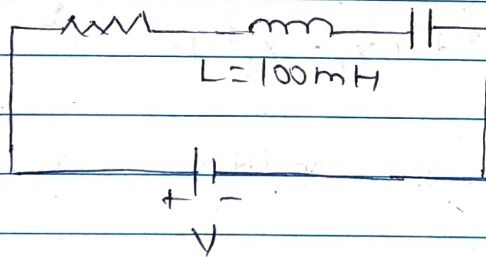 L = 100mH
+ -
V